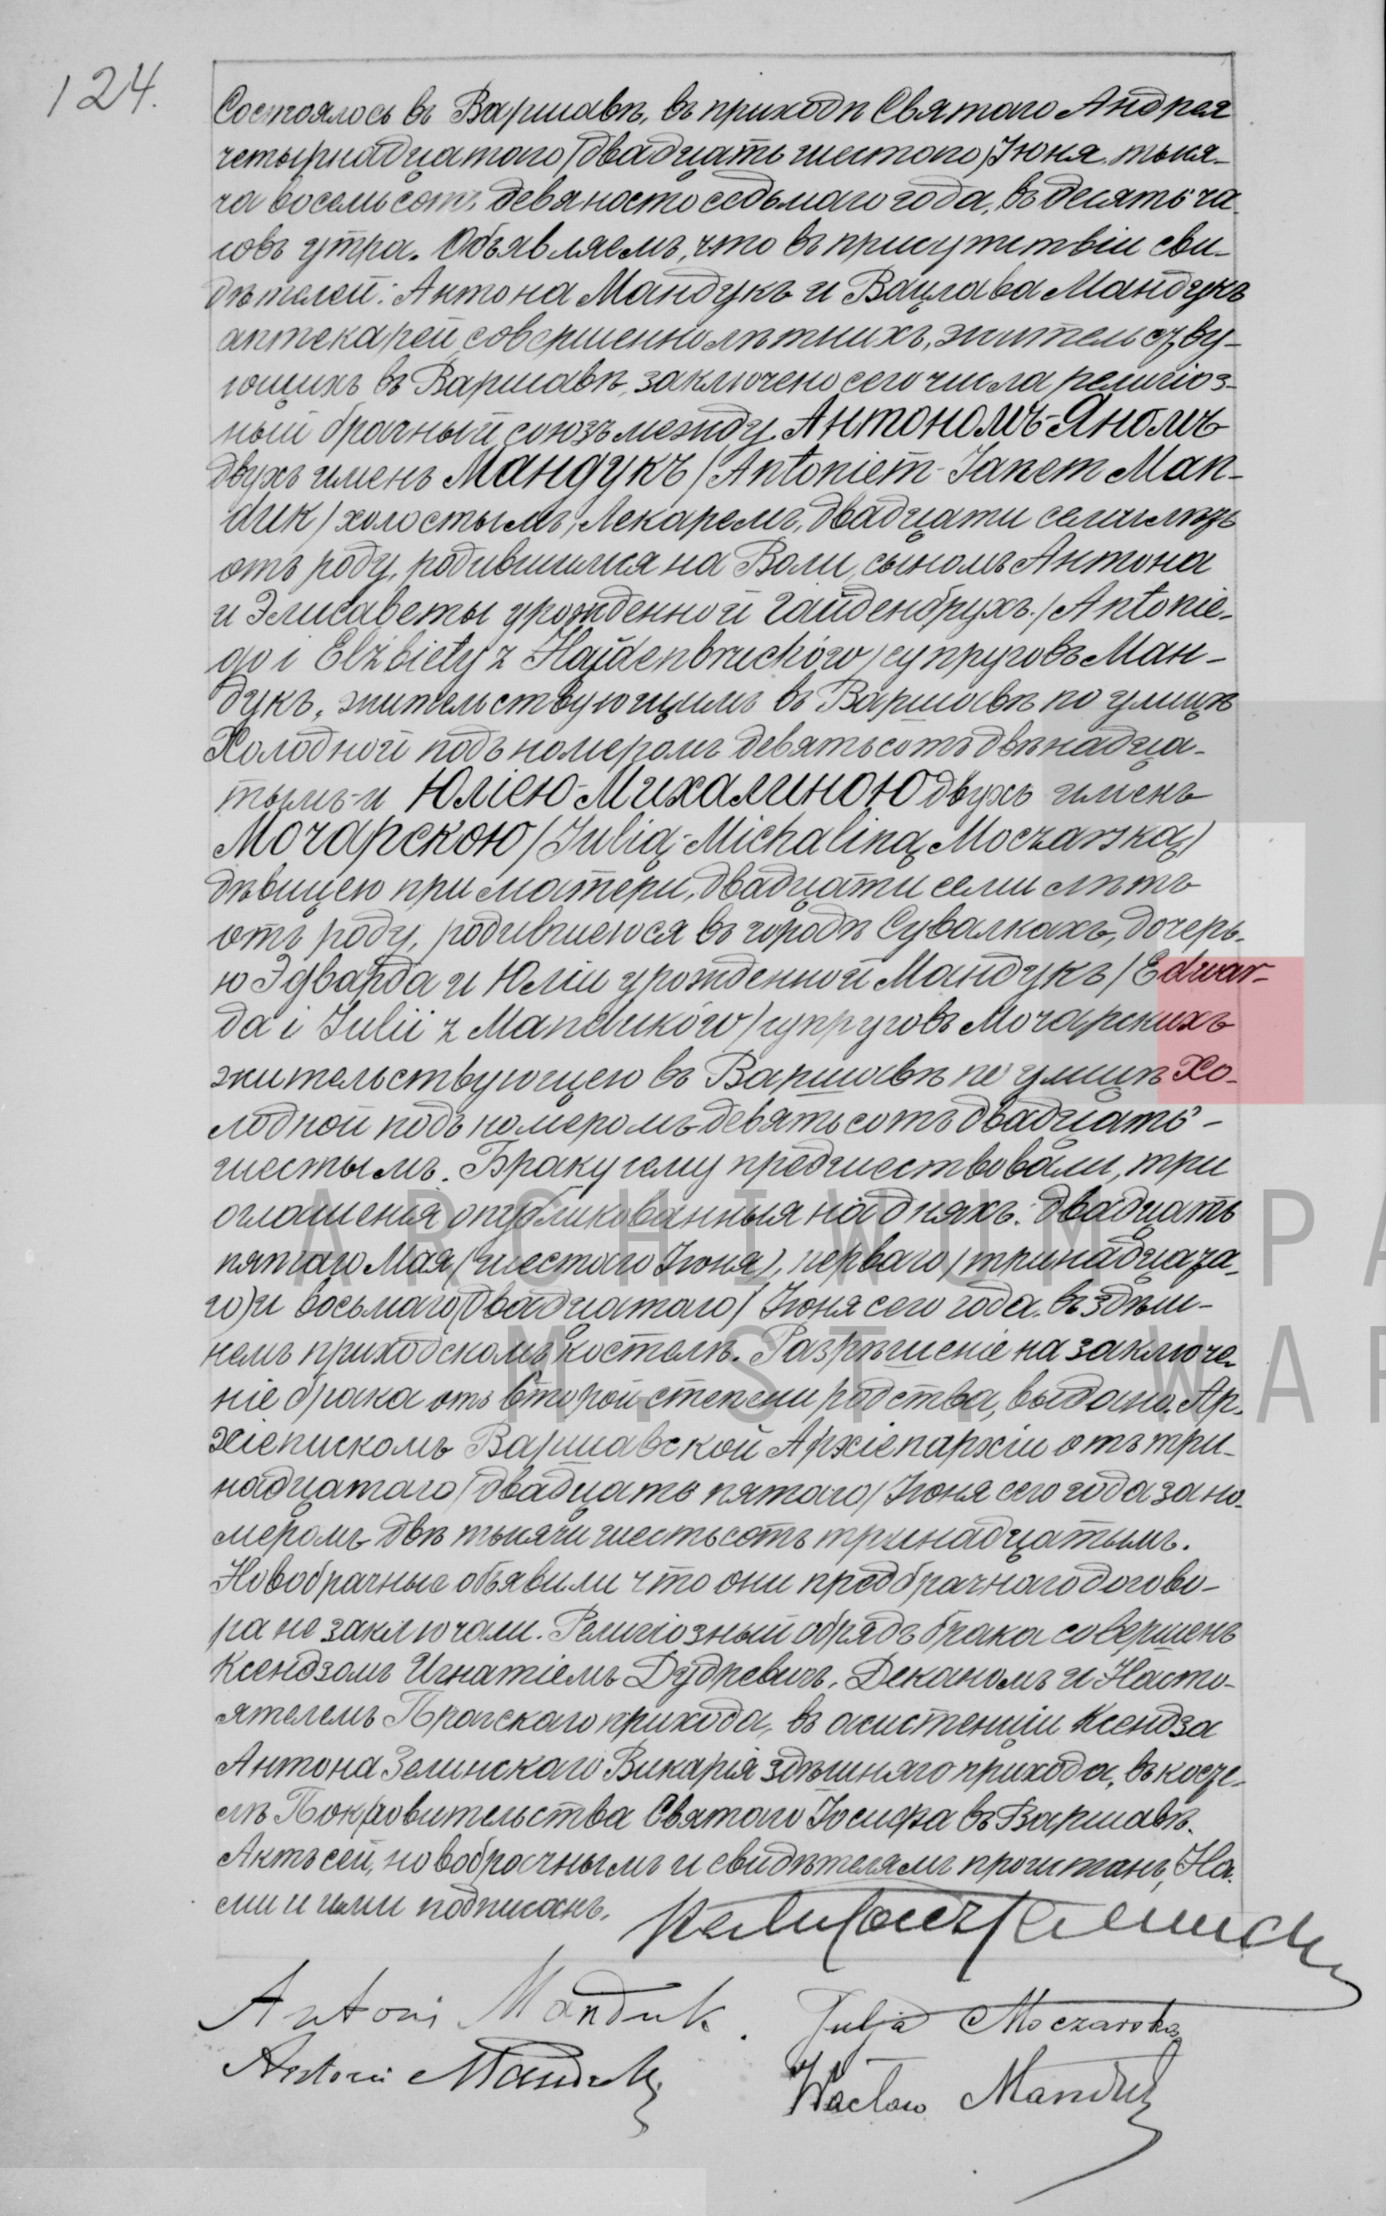 124.
Состоялось въ Варшавѣ, въ приходѣ Святого Андрея
четырнадцатого/двадцать шестого/Іюня, тыся-
ча восемьсотъ девяносто седьмаго года, въ десять ча-
совъ утра. Объявляемъ, что въ присутствіи сви-
дѣтелей: Антона Мандукъ и Вацлава Мандукъ
аптекарей, совершеннолѣтнихъ, жительству-
ющихъ въ Варшавѣ, заключено сего числа религіоз-
ный брачный союзъ между Антономъ-Яномъ
двухъ именъ Мандукъ/Antoniem-Janem Man-
duk/холостымъ, Лекаремъ, двадцати семи лѣтъ
отъ роду, родившимся на Воли, сыномъ Антона
и Элисаветы урожденной Гайденбрухъ./Antonie-
go i Elżbiety z Hajdenbruchów/супруговъ Ман-
дукъ, жительствующимъ въ Варшавѣ по улицѣ
Холодной подъ номеромъ девятьсотъ двѣнадца-
тымъ-и Юліею-Михалиною двухъ именъ
Мочарскою/Julią-Michaliną Moczarską/
дѣвицею при матери, двадцати семи лѣтъ
отъ роду, родившеюся въ городѣ Сувалкахъ, дочерь-
ю Эдварда и Юліи урожденной Мандукъ/Edwar-
da i Julii z Manduków/супруговъ Мочарскихъ
жительствующею въ Варшавѣ по улицѣ Хо-
лодной подъ номеромъ девятьсотъ двадцать-
шестымъ. Браку сему предшествовали, три
оглашенія опубликованныя на дняхъ: двадцать
пятаго Мая/шестого Іюня), перваго/тринадцата-
го) и восьмаго/двадцатаго/Іюня сего года въ здѣш-
немъ приходскомъ костелѣ. Разрѣшеніе на заключе-
ніе брака отъ второй степени родства, выдано Ар-
хіепископомъ Варшавской Архіепархіи отъ три-
надцатаго/двадцать пятаго/Іюня сего года за но-
меромъ двѣ тысячи шестьсотъ тринадцатымъ.
Новобрачные объявили что они предбрачнаго догово-
ра не заключали. Религіозный обрядъ брака совершенъ
Ксендзомъ Игнатіемъ Дудревичъ, Деканомъ и Насто-
ятелемъ Прагскаго прихода, въ асистенціи Ксендза
Антона Зелинскаго Викарія здѣшняго прихода, въ косте-
лѣ Покровительства Святого Іосифа въ Варшавѣ.
Актъ сей, новобрачнымъ и свидѣтелямъ прочитанъ, На-
ми и ими подписанъ.
Antoni Manduk. Julja Moczarska
Antoni Manduk Wacław Manduk
ARCHIWUM PA
M. ST. WAR